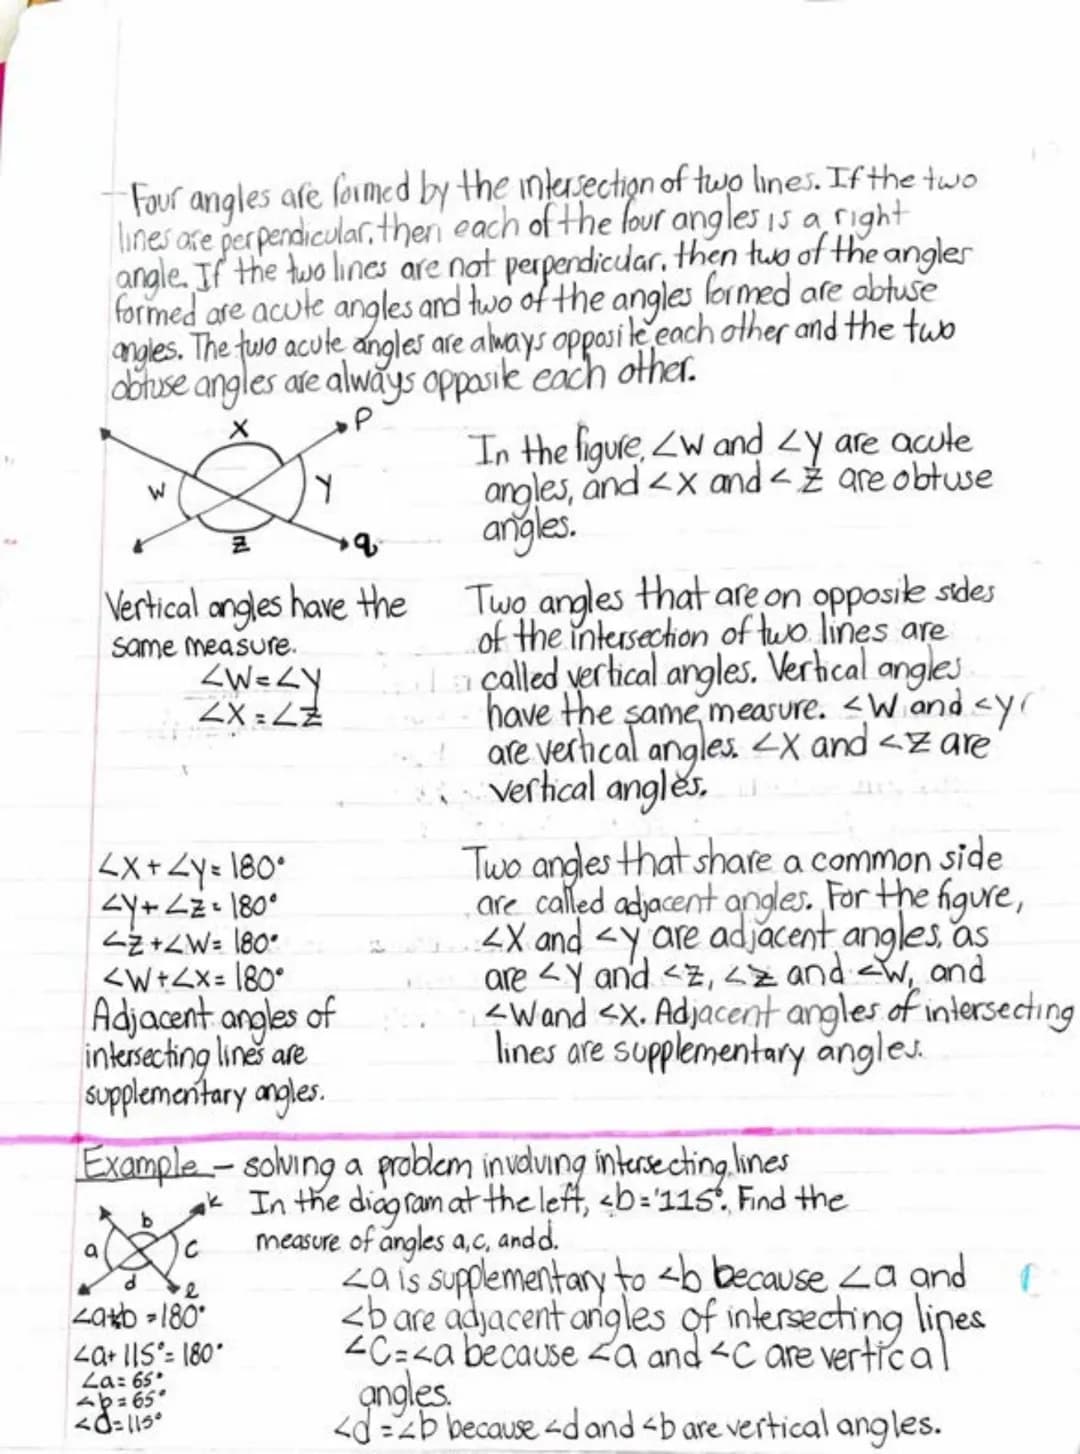 Four angles are formed by the intersection of two lines. If the two
lines are perpendicular, then each of the four angles is a right
angle. If the two lines are not perpendicular, then two of the angles
formed are acute angles and two of the angles formed are obtuse
angles. The two acute angles are always opposite each other and the two
obtuse angles are always opposite each other.
X
P
W
Y
Z
q
In the figure, ∠W and ∠y are acute
angles, and ∠X and ∠Z are obtuse
angles.
Vertical angles have the
same measure.
∠W=∠Y
∠X=∠Z
Two angles that are on opposite sides
of the intersection of two lines are
called vertical angles. Vertical angles
have the same measure. ∠W and ∠y
are vertical angles. ∠X and ∠Z are
vertical angles.
∠X+∠Y=180°
∠Y+∠Z=180°
∠Z+∠W=180°
∠W+∠X=180°
Adjacent angles of
intersecting lines are
supplementary angles.
Two angles that share a common side
are called adjacent angles. For the figure,
∠X and ∠y are adjacent angles, as
are ∠Y and ∠Z, ∠Z and ∠W, and
∠W and ∠X. Adjacent angles of intersecting
lines are supplementary angles.
Example - solving a problem involving intersecting lines
In the diagram at the left, ∠b=115°. Find the
measure of angles a, c, and d.
k
b
a
c
d
l
∠a+b=180°
∠a+115°=180°
∠a=65°
∠b=65°
∠d=115°
∠a is supplementary to ∠b because ∠a and
∠b are adjacent angles of intersecting lines
∠C=∠a because ∠a and ∠C are vertical
angles.
∠d=∠b because ∠d and ∠b are vertical angles.